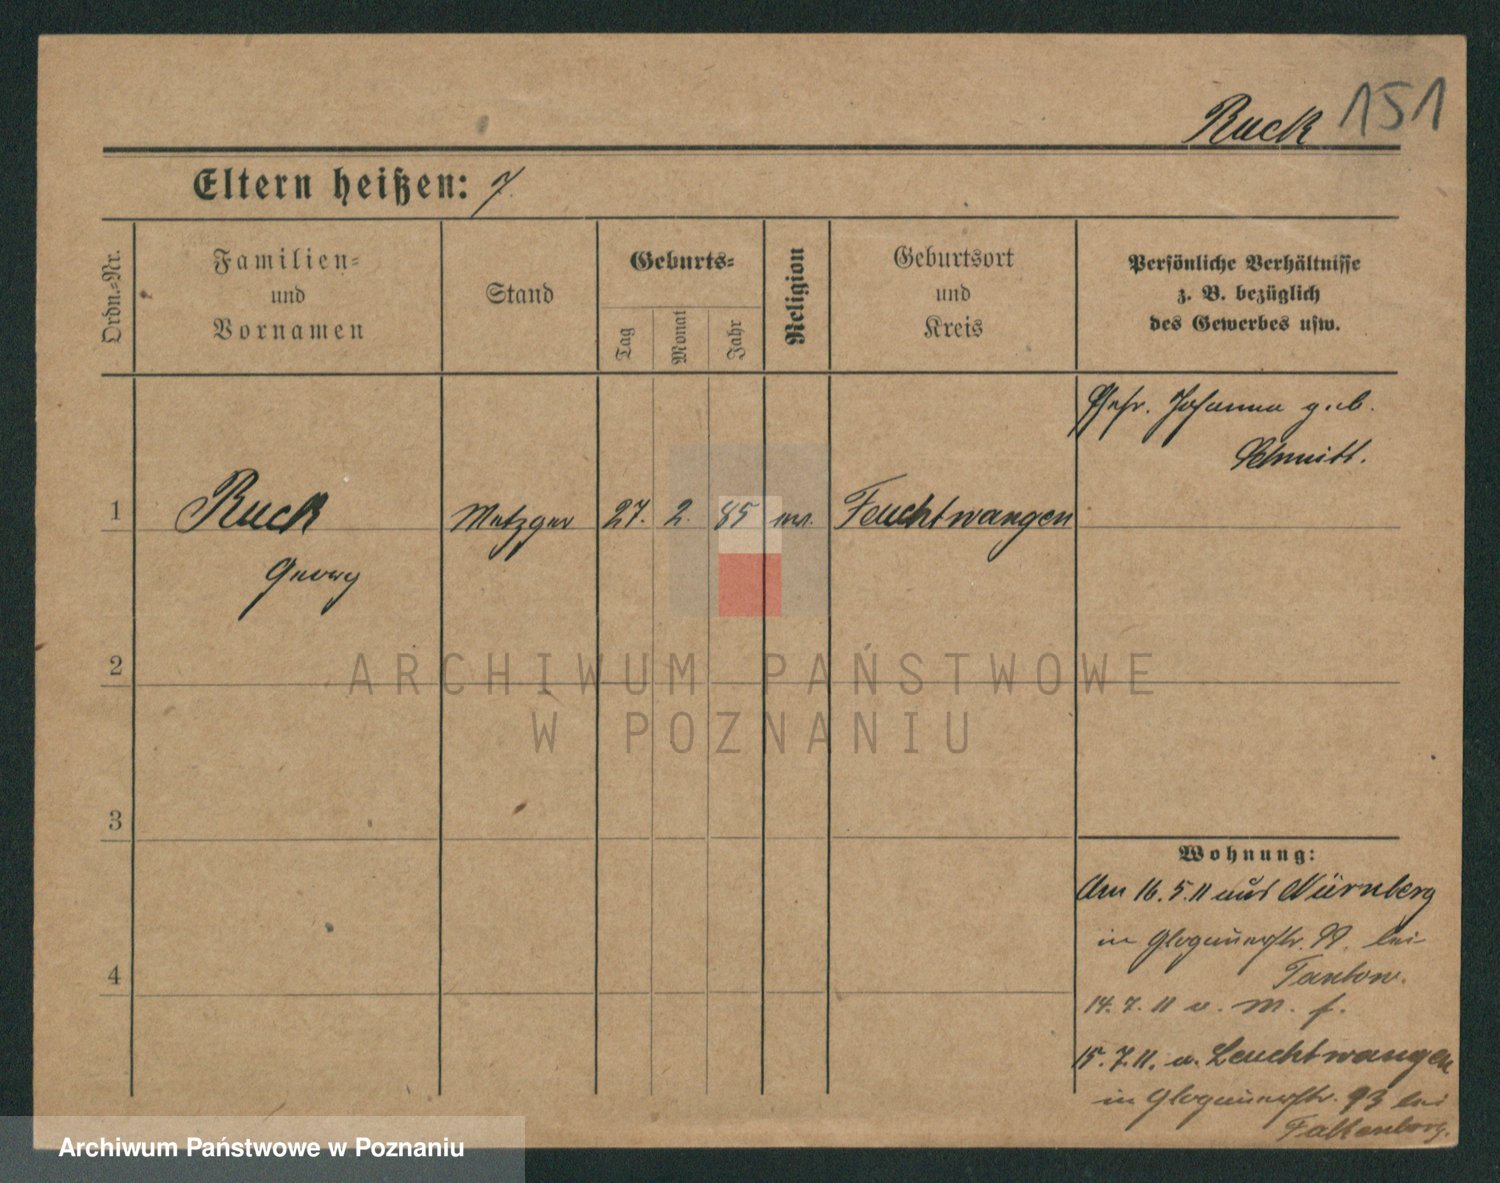 Ruck 151
Eltern heißen: 7.
Ordn.-Nr.
Familien-
und
Vornamen
Stand
Geburts-
Tag
Monat
Jahr
Religion
Geburtsort
und
Kreis
Persönliche Verhältnisse
z. B. bezüglich
des Gewerbes usw.
Ehefr. Johanna geb.
Schmitt.
1 Ruck Metzger 27. 2. 85 ev. Feuchtwangen
Georg
2
3
4
ARCHIWUM PAŃSTWOWE
W POZNANIU
Wohnung:
Am 16.5.11 aus Nürnberg
in Glogauerstr. 99. bei
14.7.11 v. M. f.
15.7.11. v. Leuchtwangen
in Glogauerstr. 93 bei
Falkenberg.
Archiwum Państwowe w Poznaniu